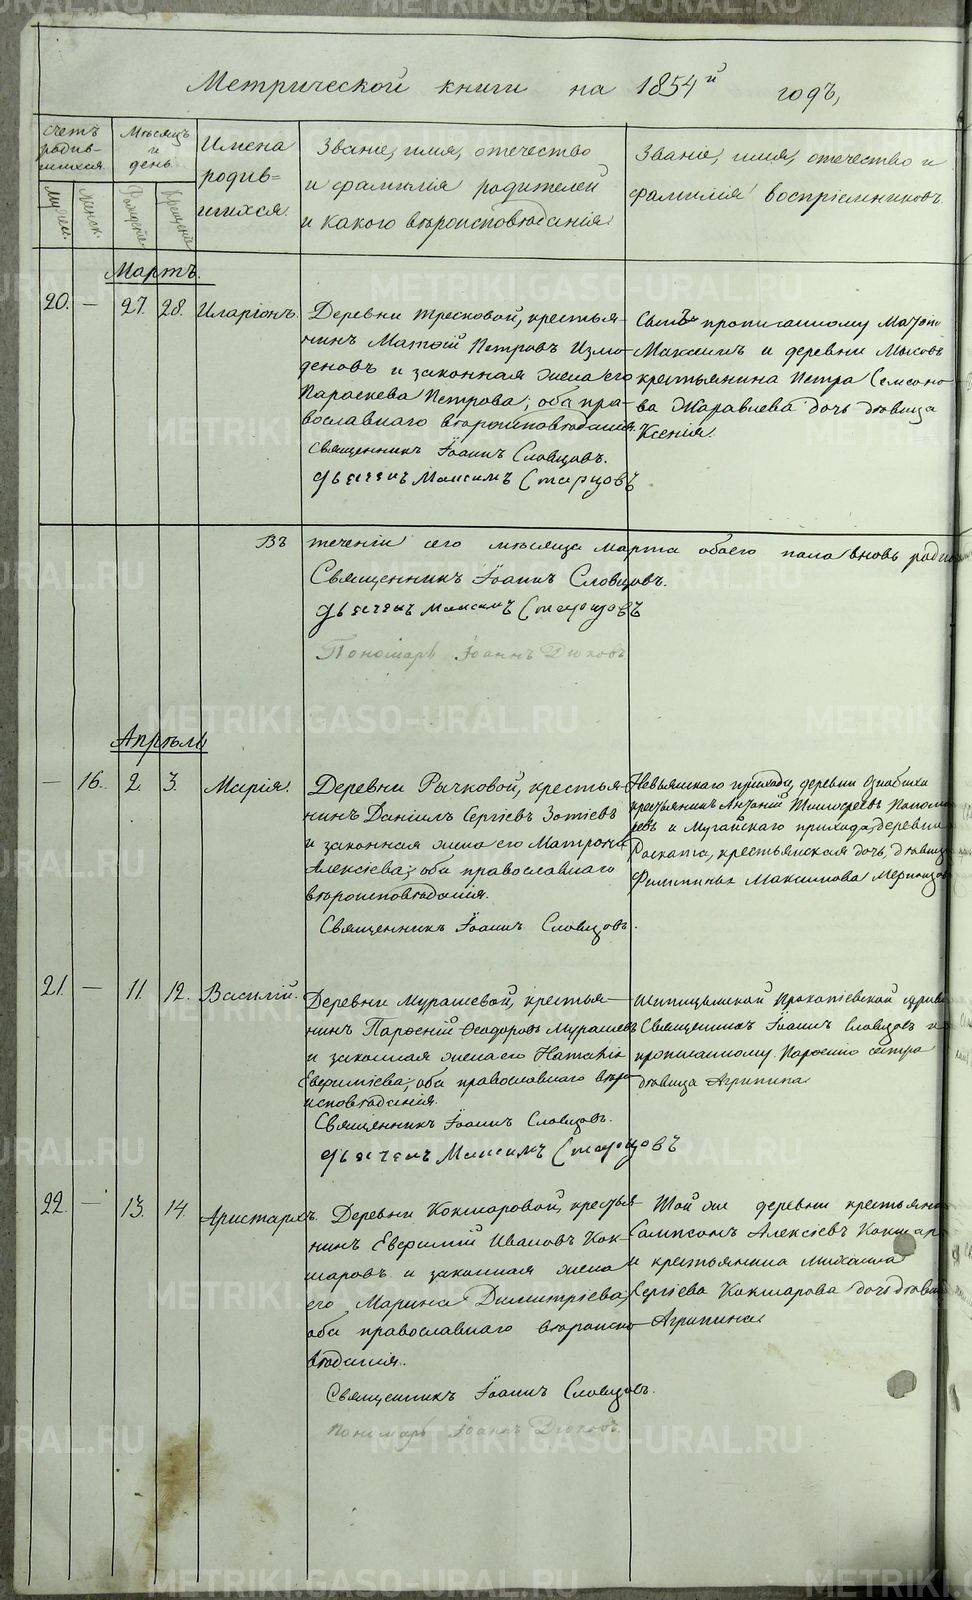 Метрической книги на 1854й годъ,
счетъ родив-шихся.
Мѣсяцъ и день.
Имена родив=шихся.
Званіе, имя, отечество
и фамилія родителей
и какого вѣроисповѣданія.
Званіе, имя, отечество и
фамилія воспріемниковъ.
Мартъ.
20. — 27. 28. Иларіонъ.
Деревни Тресковой, крестья-
нинъ Матѳій Петровъ Измо-
деновъ и законная жена его
Параскева Петрова; оба пра-
вославнаго вѣроисповѣданія.
Священникъ Іоаннъ Словцовъ.
Дьячекъ Максимъ Старцовъ
Сынъ прописанному
Максимъ и деревни Мысовъ
крестьянина Петра Самсоно-
ва Жаравлева дочь дѣвица
Ксенія.
Въ теченіи сего мѣсяца марта обоего пола вновь
Священникъ Іоаннъ Словцовъ.
Дьячекъ Максимъ Старцовъ
Пономарь Іоаннъ Дюковъ
Апрѣль
— 16. 2. 3. Марія.
Деревни Рычковой, крестья-
нинъ Даніилъ Сергіевъ Зотіевъ
и законная жена его Матрона
Алексіева; оба православнаго
вѣроисповѣданія.
Священникъ Іоаннъ Словцовъ.
Невьянскаго прихода, деревни
крестьянинъ Антоній
и Мугайскаго прихода, деревни
Раската, крестьянская дочь, дѣвица
Максимова
21. — 11. 12. Василій.
Деревни Мурашевой, крестья-
нинъ Парѳеній Ѳеодоровъ Мурашевъ
и законная жена его Наталія
Евфиміева; оба православнаго вѣро-
исповѣданія.
Священникъ Іоаннъ Словцовъ.
Дьячекъ Максимъ Старцовъ
Шипицынской Прокопіевской церкви
Священникъ Іоаннъ Словцовъ и
прописанному Парѳенію сестра
дѣвица Агрипина
22. — 13. 14. Аристархъ.
Деревни Кокшаровой, крестья-
нинъ Евфимій Ивановъ Кок-
шаровъ и законная жена
его Марина Димитріева,
оба православнаго вѣроиспо-
вѣданія.
Священникъ Іоаннъ Словцовъ.
Пономарь Іоаннъ Дюковъ.
Той же деревни крестьянинъ
Сампсонъ Алексіевъ Кокшаровъ
и крестьянина Михаила
Сергіева Кокшарова дочь дѣвица
Агрипина
METRIKI.GASO-URAL.RU